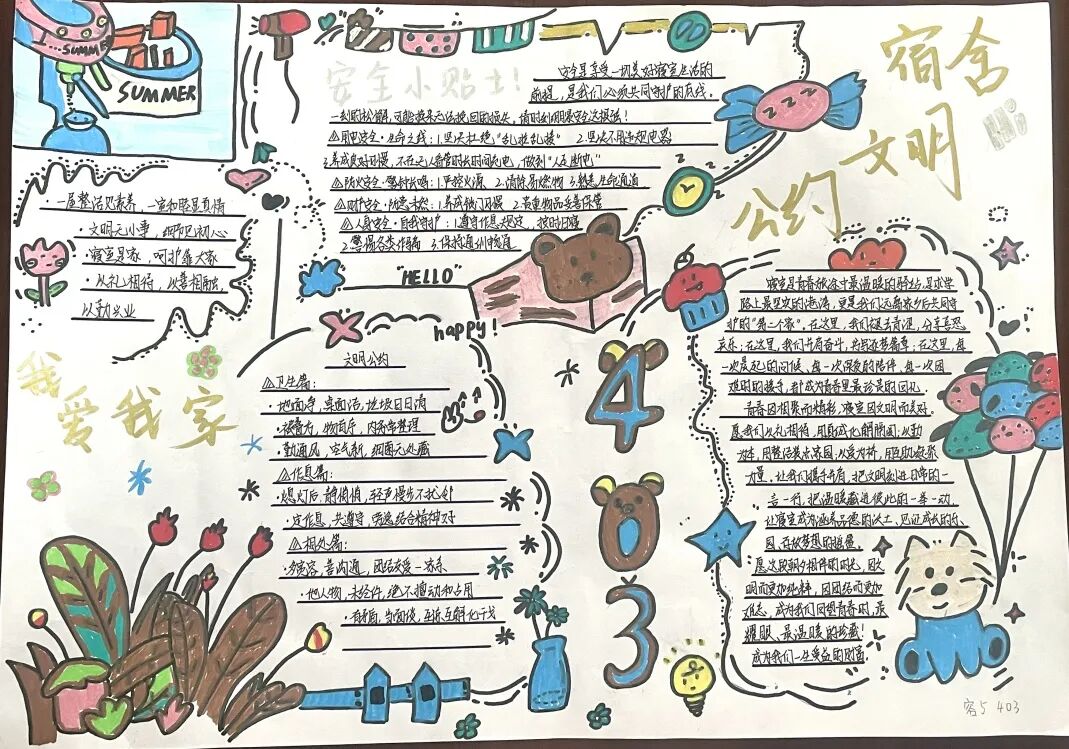 SUMMER
SUMMER
安全小贴士!
安全是享受一切美好寝室生活的
前提，是我们必须共同守护的底线。
一刻的松懈，可能换来无法挽回的损失，请时刻绷紧安全这根弦!
△用电安全·生命之线：1.坚决杜绝"乱拉乱接" 2.坚决不用违规电器
3.养成良好习惯，不在无人看管时长时间充电，做到"人走断电"
△防火安全·警钟长鸣：1.严控火源 2.清除易燃物 3.熟悉生命通道
△财产安全·防患未然：1.养成锁门习惯 2.贵重物品妥善保管
△人身安全·自我守护：1.遵守作息规定，按时归寝
2.警惕各类诈骗 3.保持通讯畅通
"HELLO"
happy!
宿舍
文明
公约
Hi
zzz
一屋整洁见素养，一室和睦显真情
·文明无小事，细节见初心
·寝室是家，呵护靠大家
·以礼相待，以善相融，
以勤兴业
我爱我家
文明公约
△卫生篇：
·地面净，桌面洁，垃圾日日清
·被叠方，物有序，内务常整理
·勤通风，空气新，细菌无处藏
△作息篇：
·熄灯后，静悄悄，轻声慢步不扰邻
·定作息，共遵守，劳逸结合精神好
△相处篇：
·多宽容，善沟通，团结友爱一家亲
·他人物，未经许，绝不擅动和占用
·有矛盾，当面谈，互谅互解化干戈
403
寝室是青春旅途中最温暖的驿站，是求学
路上最坚实的港湾，更是我们远离家乡后共同守
护的"第二个家"。在这里，我们褪去青涩，分享喜怒
哀乐；在这里，我们并肩奋斗，共书逐梦篇章；在这里，每
一次晨起的问候、每一次深夜的陪伴、每一次困
难时的援手，都成为青春里最珍贵的回忆。
青春因相聚而精彩，寝室因文明而美好。
愿我们以礼相待，用真诚化解隔阂；以勤
为本，用整洁装点家园；以爱为桥，用互助凝聚
力量。让我们携手并肩，把文明刻进日常的一
言一行，把温暖藏进彼此的一举一动，
让寝室成为涵养品德的沃土、见证成长的乐
园、存放梦想的港湾。
愿这段朝夕相伴的时光，因文
明而更加纯粹，因团结而更加
难忘，成为我们回望青春时，最
耀眼、最温暖的珍藏!
成为我们一生受益的财富。
宿5 403